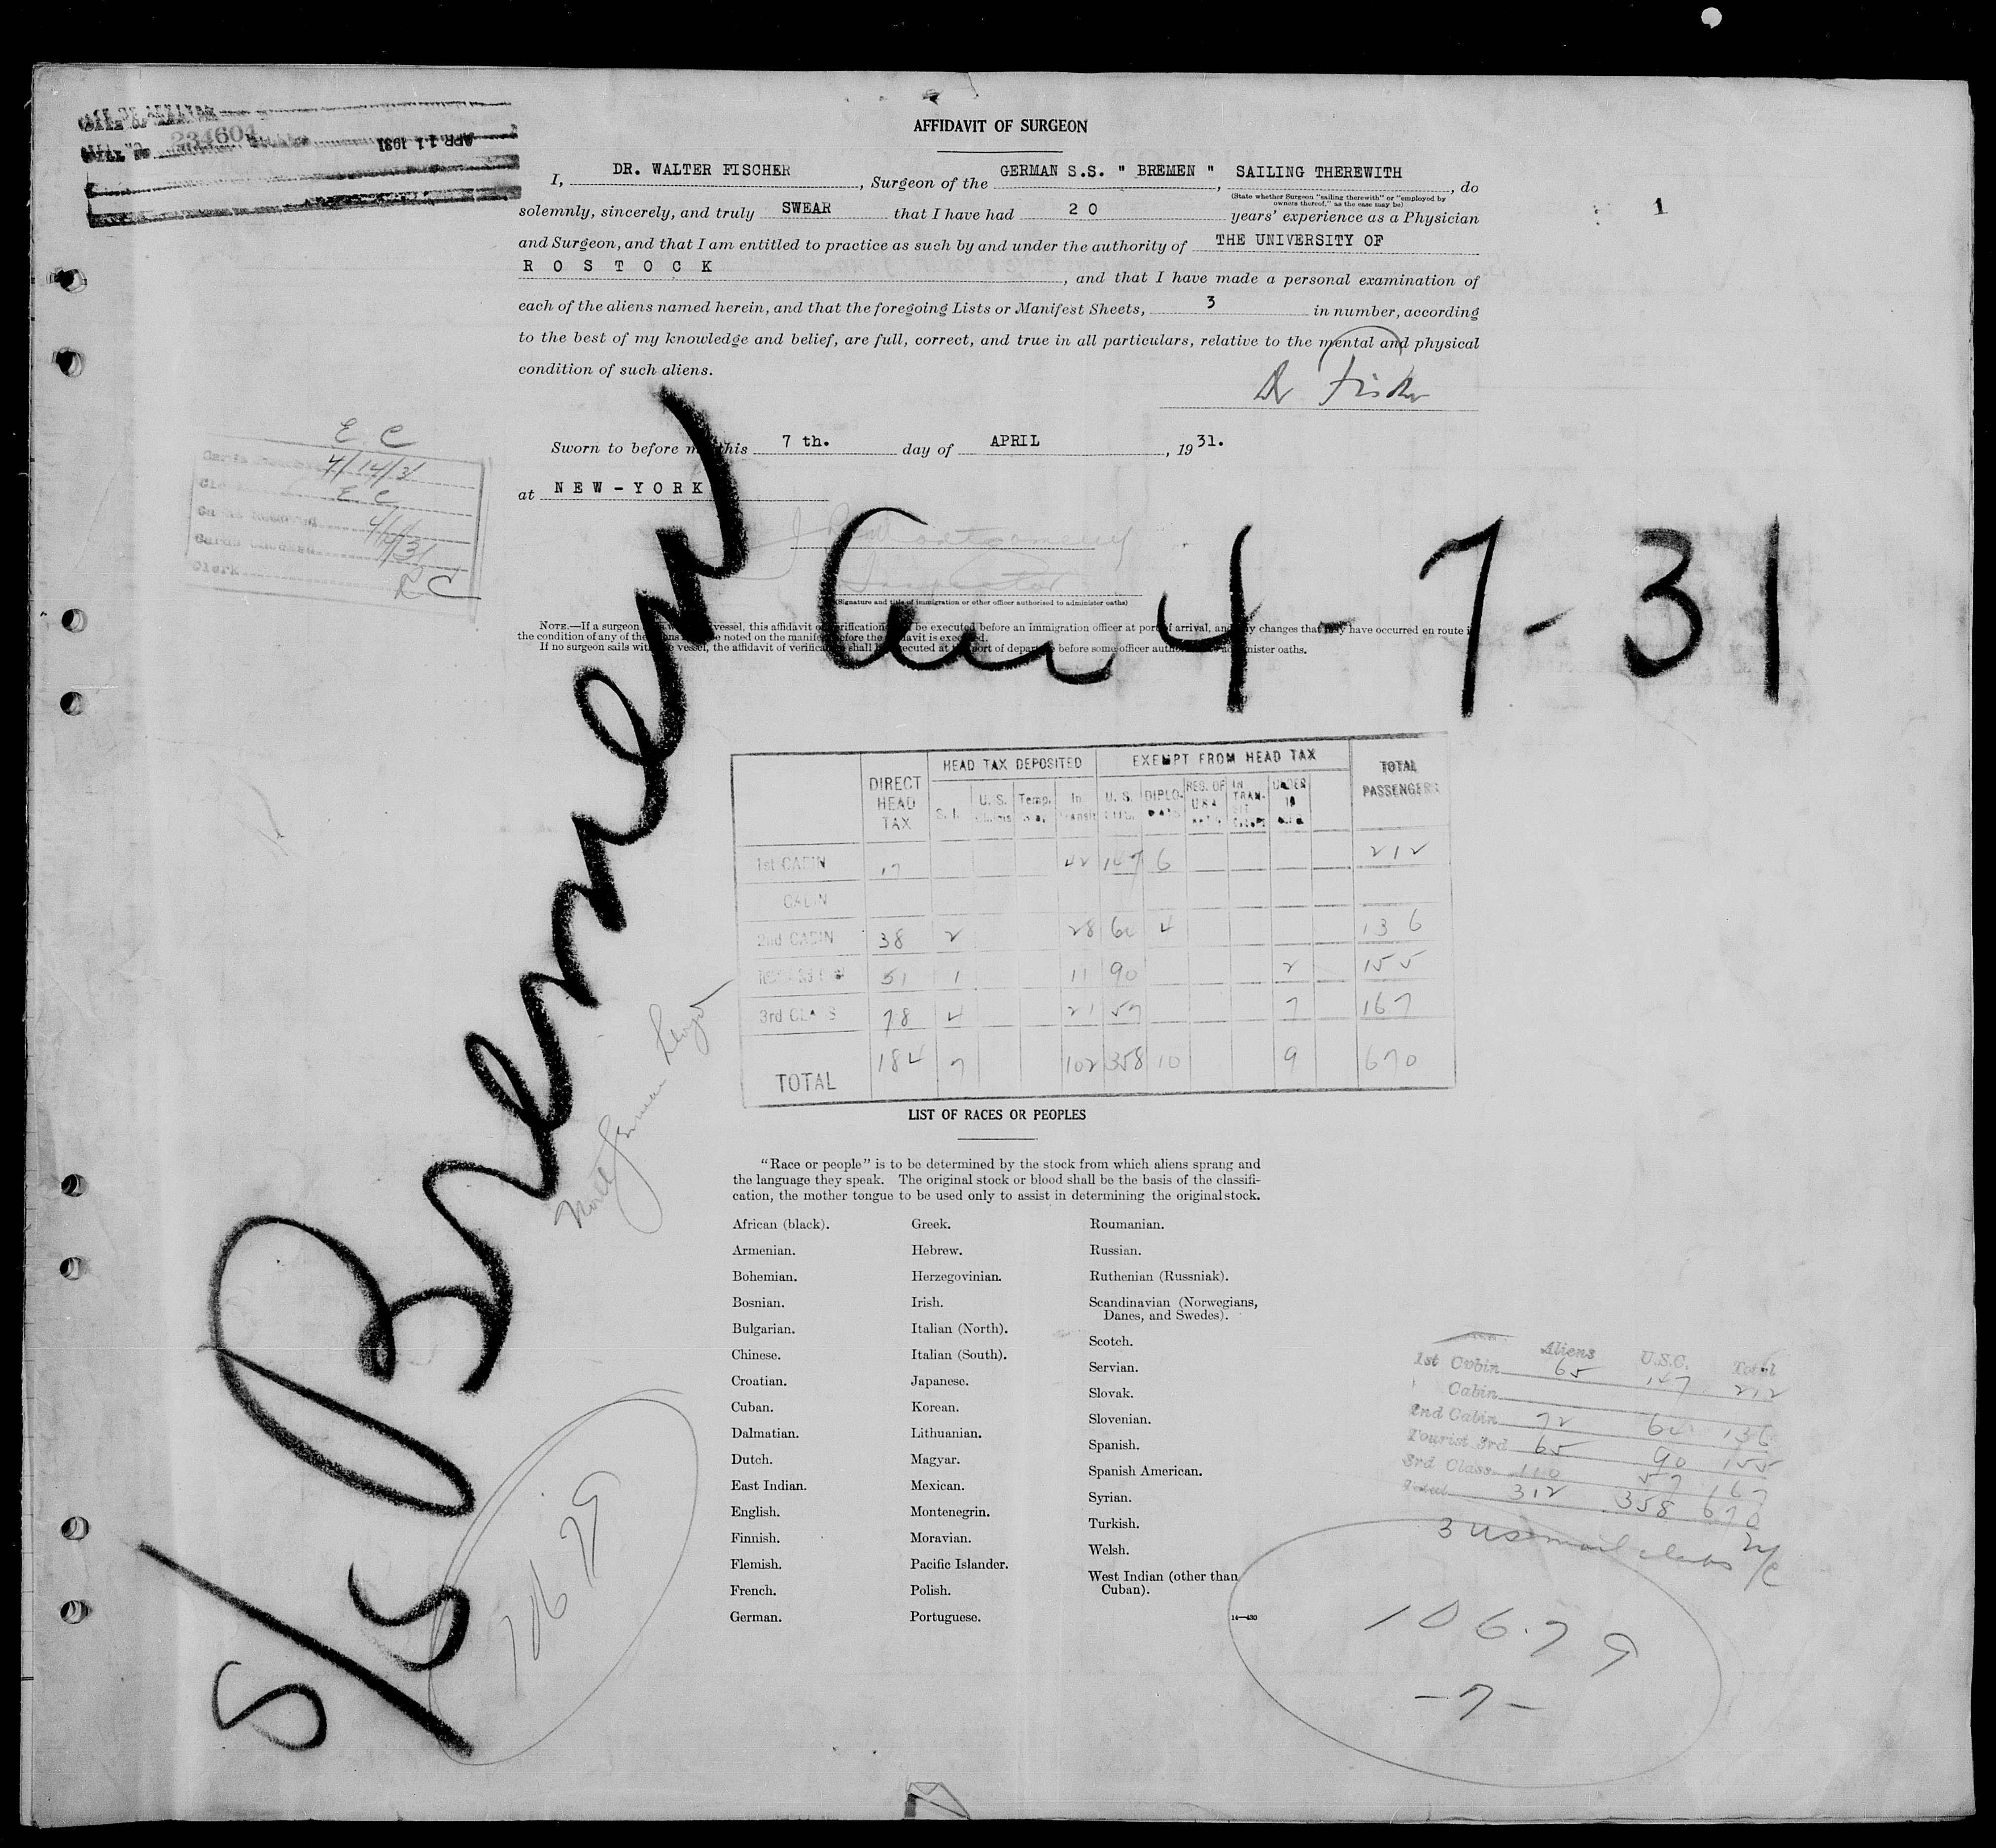 234604
APR 11 1931
AFFIDAVIT OF SURGEON
I, DR. WALTER FISCHER, Surgeon of the GERMAN S.S. " BREMEN ", SAILING THEREWITH, do
(State whether Surgeon "sailing therewith" or "employed by
owners thereof," as the case may be)
solemnly, sincerely, and truly SWEAR that I have had 20 years' experience as a Physician
1
and Surgeon, and that I am entitled to practice as such by and under the authority of THE UNIVERSITY OF
R O S T O C K, and that I have made a personal examination of
each of the aliens named herein, and that the foregoing Lists or Manifest Sheets, 3 in number, according
to the best of my knowledge and belief, are full, correct, and true in all particulars, relative to the mental and physical
condition of such aliens.
Dr Fischer
Sworn to before me this 7 th. day of APRIL, 1931.
at NEW-YORK
E C
4/14/31
E C
4/14/31
Clerk E C
J Montgomery
Inspector
(Signature and title of immigration or other officer authorized to administer oaths)
NOTE.—If a surgeon vessel, this affidavit be executed before an immigration officer at port of arrival, and any changes that may have occurred en route
the condition of any of the noted on the manifest before the affidavit is executed.
If no surgeon sails with the vessel, the affidavit of verification shall be executed at the port of departure before some officer authorized to administer oaths.
S/S Bremen
4-7-31
North German Lloyd
DIRECT HEAD TAX HEAD TAX DEPOSITED EXEMPT FROM HEAD TAX TOTAL PASSENGERS
S. I. U. S. Temp. In Transit U. S. DIPLO- IN TRAN- UNDER
1st CABIN 17 42 147 6 212
CABIN
2nd CABIN 38 2 28 64 4 136
51 1 11 90 2 155
3rd CLASS 78 4 21 57 7 167
TOTAL 184 7 102 358 10 9 670
LIST OF RACES OR PEOPLES
"Race or people" is to be determined by the stock from which aliens sprang and
the language they speak. The original stock or blood shall be the basis of the classifi-
cation, the mother tongue to be used only to assist in determining the original stock.
African (black).
Armenian.
Bohemian.
Bosnian.
Bulgarian.
Chinese.
Croatian.
Cuban.
Dalmatian.
Dutch.
East Indian.
English.
Finnish.
Flemish.
French.
German.
Greek.
Hebrew.
Herzegovinian.
Irish.
Italian (North).
Italian (South).
Japanese.
Korean.
Lithuanian.
Magyar.
Mexican.
Montenegrin.
Moravian.
Pacific Islander.
Polish.
Portuguese.
Roumanian.
Russian.
Ruthenian (Russniak).
Scandinavian (Norwegians,
Danes, and Swedes).
Scotch.
Servian.
Slovak.
Slovenian.
Spanish.
Spanish American.
Syrian.
Turkish.
Welsh.
West Indian (other than
Cuban).
14—430
Aliens U.S.C. Total
1st Cabin 65 147 212
Cabin
2nd Cabin 72 64 136
Tourist 3rd 65 90 155
3rd Class 110 57 167
Total 312 358 670
3 US mail clerks
10679
10679
-7-